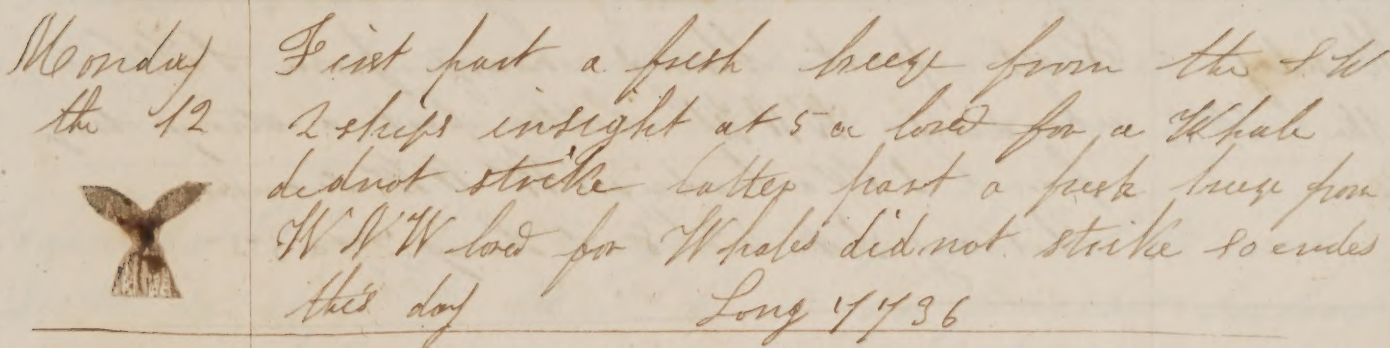 Monday First part a fresh breeze from the S W
the 12 2 ships insight at 5 oc lowd for a Whale
didnot strike latter part a fresh breeze from
W N W lowd for Whales did not strike So endes
this day Long 77 36